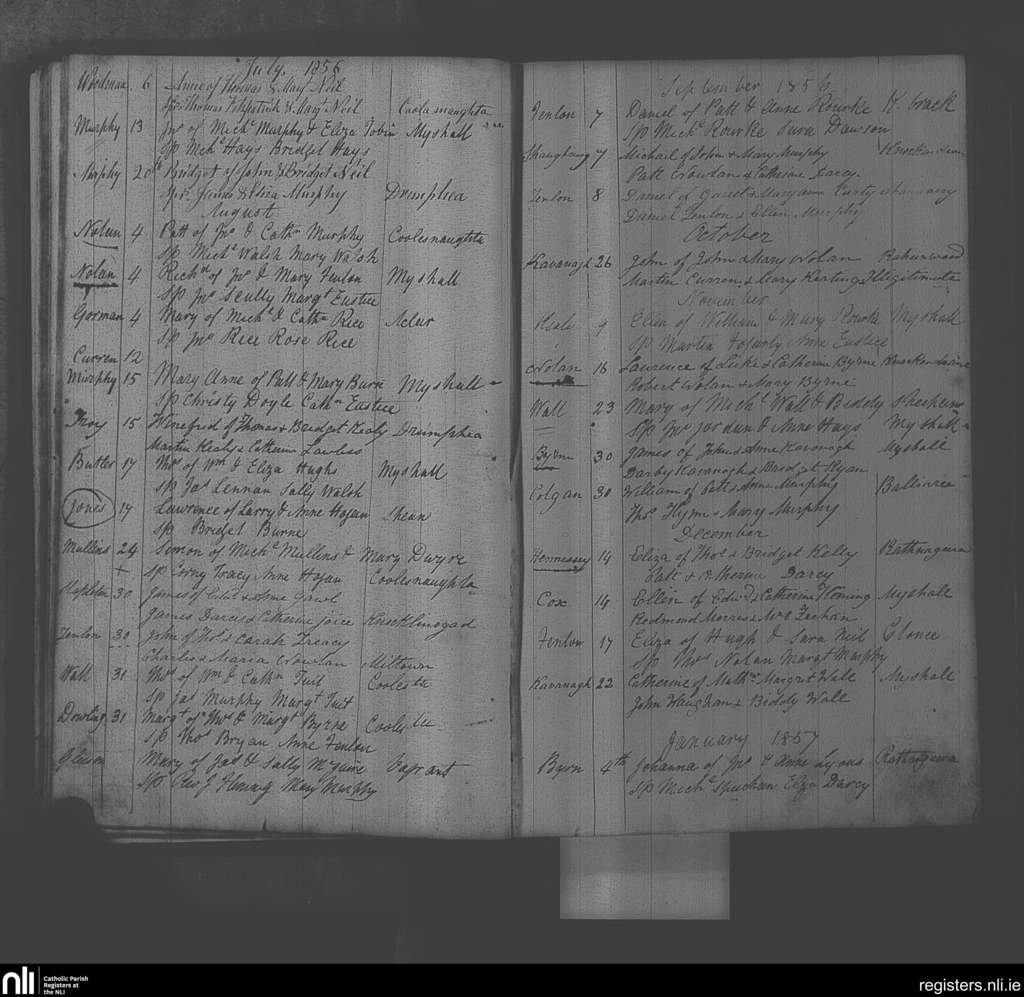 July. 1856
Woodman. 6 Anne of Thomas & Mary Neil
Sps Thomas Fitzpatrick & Mary Neil Coolasnaughta
Murphy 13 Jno of Michl Murphy & Eliza Tobin Myshall
Sp Michl Hays Bridget Hays
Murphy 20th Bridget of John & Bridget Neil
Sps. James & Eliza Murphy Drumphea
August
Nolan 4 Patt of Jno & Cathn Murphy Coolesnaughta
Sp Michl Walsh Mary Walsh
Nolan 4 Richd of Jno & Mary Fenlon Myshall
Sp Jno Scully Margt Eustice
Gorman 4 Mary of Michl & Cathn Rice Aclar
Sp Jno Rice Rose Rice
Curren 12
Murphy 15 Mary Anne of Patt & Mary Burn Myshall
Sp Christy Doyle Cathn Eustice
Troy 15 Winefred of Thomas & Bridget Kealy Drumphea
Martin Kealy & Catherine Lawless
Butler 17 Thos of Wm & Eliza Hughs Myshall
Sp Jas Lennan Sally Walsh
Jones 17 Lawrence of Larry & Anne Hogan Shean
Sp Bridget Burne
Mullins 24 Simon of Michl Mullins & Mary Dwyre
Sp Corny Tracy Anne Hogan Coolesnaughta
30 James of Edwd & Anne
James Darcy & Catherine Joice Knocklinogad
Fenlon 30 John of Thos & Sarah Treacy
Charles & Maria Nowlan Miltown
Wall 31 Thos of Wm & Cathn Tuit
Sp Jas Murphy Margt Tuit
Dowling 31 Margt of Thos & Margt Byrne
Sp Thos Bryan Anne Fenlon
Gleeson Mary of Jas & Sally McGuire
Sp Rev J Fleming Mary Murphy
September 1856
Fenlon 7 Daniel of Patt & Anne Rourke K. brack
Sp Michl Rourke Sara Dawson
7 Michael of John & Mary Murphy
Patt Nowlan & Catherine Darcy
Fenlon 8 Daniel of Garret & Maryanne
Daniel Fenlon & Ellen Murphy
October
Kavanagh 26 John of John & Mary Nolan Rahunwood
Martin Curran & Mary Keating Illigitimate
November
9 Ellen of William & Mary Rourke Myshall
Sp Martin Fogarty Anne Eustice
Nolan 16 Laurence of Luke & Catherine Byrne
Robert Nolan & Mary Byrne
Wall 23 Mary of Michl Wall & Biddy
Sp Jno Jordan & Anne Hays Myshall
Byrne 30 James of John & Anne Kavanagh Myshall
Darby Kavanagh & Bridget Ryan
Colgan 30 William of Patt & Anne Murphy
Thos Flynn & Mary Murphy
December
Hennessey 14 Eliza of Thos & Bridget Kelly Rathnageera
Patt & Catherine Darcy
Cox 14 Ellen of Edwd & Catherine Fleming Myshall
Redmond Morris & Mrs
Fenlon 17 Eliza of Hugh & Sara Neil Clonee
Sp Thos Nolan Margt Murphy
Kavanagh 22 Catherine of Mathw Margret Wall Myshall
John Vaughan & Biddy Wall
January 1857
Byrn 4th Johanna of Jno & Anne Lyons Rathnageera
Sp Michl Eliza Darcy
nli
Catholic Parish
Registers at
the NLI
registers.nli.ie